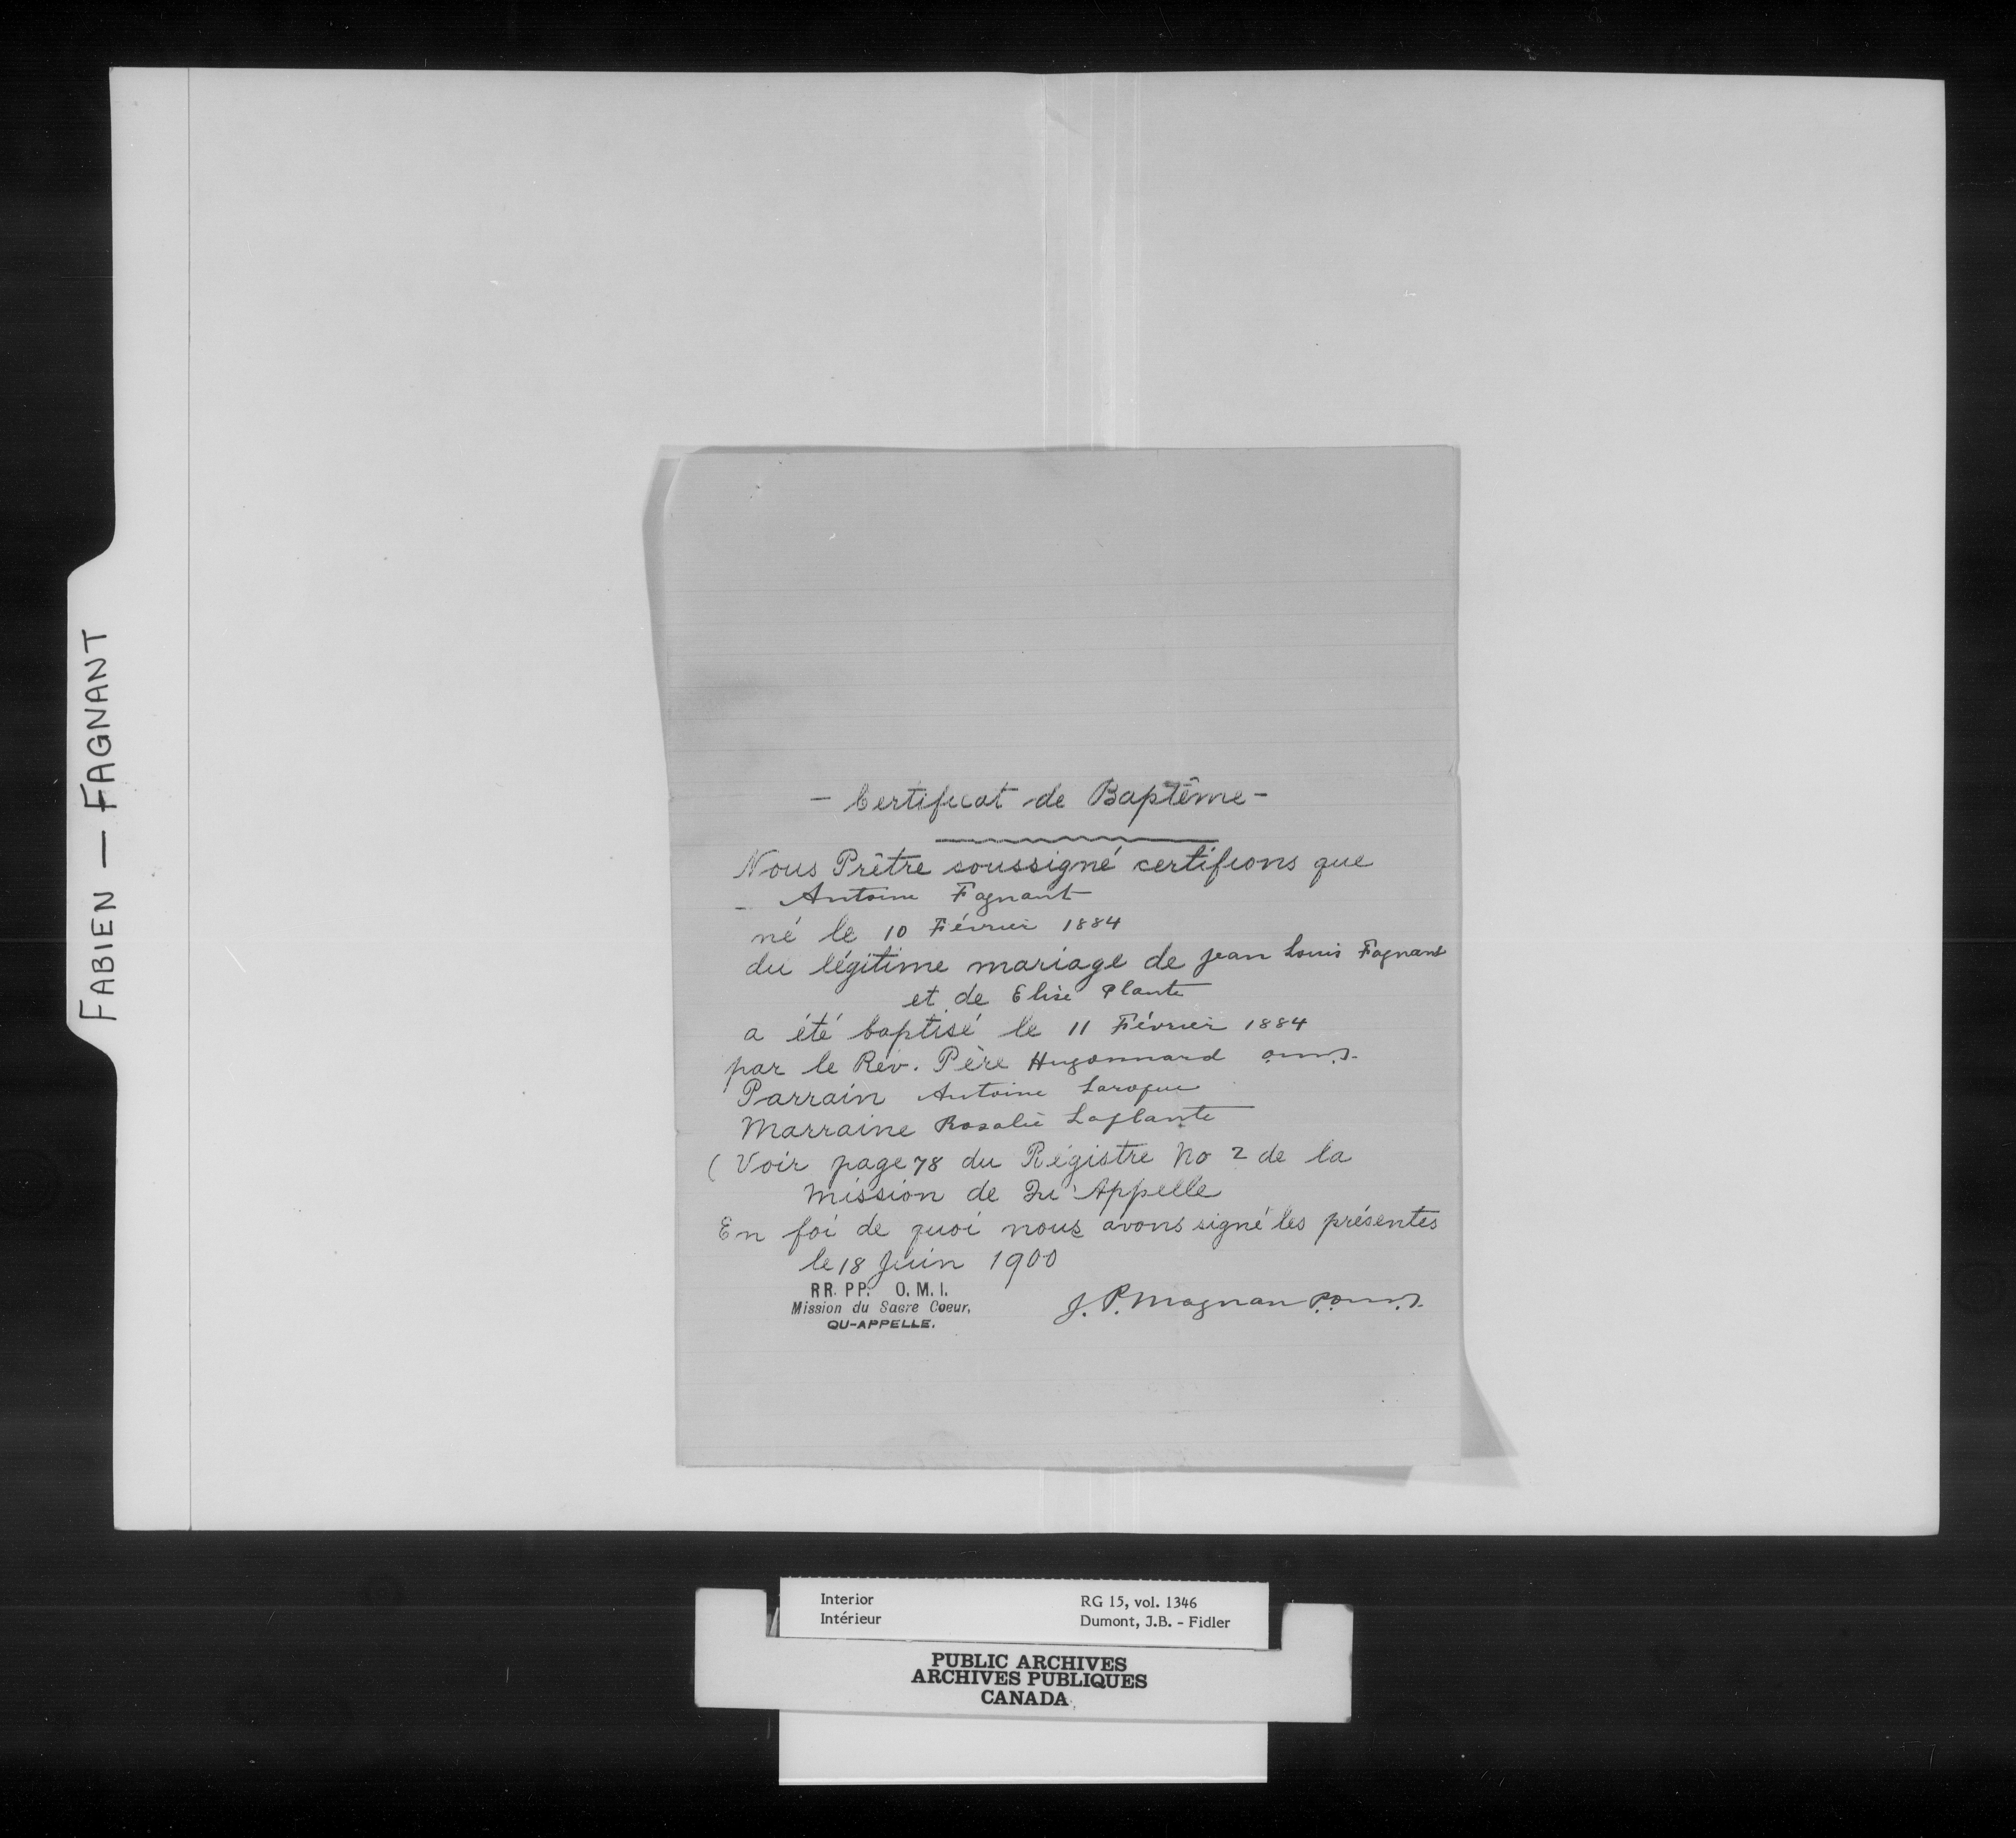 FABIEN — FAGNANT
- Certificat de Baptême -
Nous Prêtre soussigné certifions que
- Antoine Fagnant
né le 10 Février 1884
du légitime mariage de Jean Louis Fagnant
et de Elise Plante
a été baptisé le 11 Février 1884
par le Rév. Père Hugonnard o.m.i.
Parrain Antoine Laroque
Marraine Rosalie Laplante
( Voir page 78 du Régistre No 2 de la
Mission de Qu'Appelle
En foi de quoi nous avons signé les présentes
le 18 Juin 1900
RR. PP. O. M. I.
Mission du Sacre Coeur,
QU-APPELLE.
J. P. Magnan P.o.m.i.
Interior RG 15, vol. 1346
Intérieur Dumont, J.B. - Fidler
PUBLIC ARCHIVES
ARCHIVES PUBLIQUES
CANADA